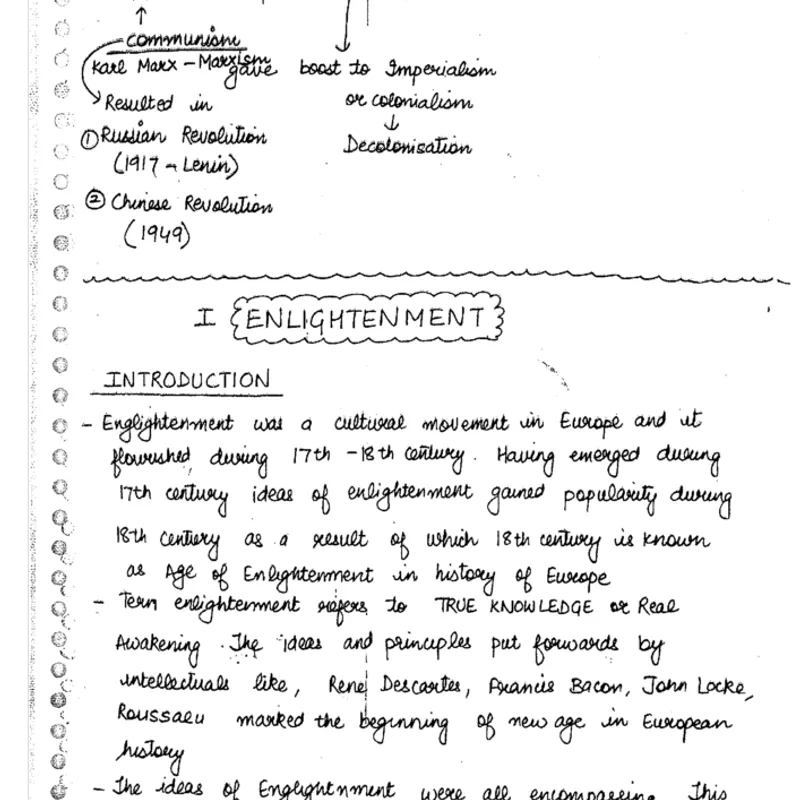 communism
Karl Marx - Marxism
gave boost to Imperialism
or colonialism
Decolonisation
Resulted in
① Russian Revolution
(1917 - Lenin)
② Chinese Revolution
(1949)
I ENLIGHTENMENT
INTRODUCTION
- Englightenment was a cultural movement in Europe and it
flourished during 17th - 18th century. Having emerged during
17th century ideas of enlightenment gained popularity during
18th century as a result of which 18th century is known
as Age of Enlightenment in history of Europe
- Term enlightenment refers to TRUE KNOWLEDGE or Real
Awakening. The ideas and principles put forwards by
intellectuals like, Rene Descartes, Francis Bacon, John Locke,
Roussaeu marked the beginning of new age in European
history
- The ideas of Englightnment were all encompassing. This